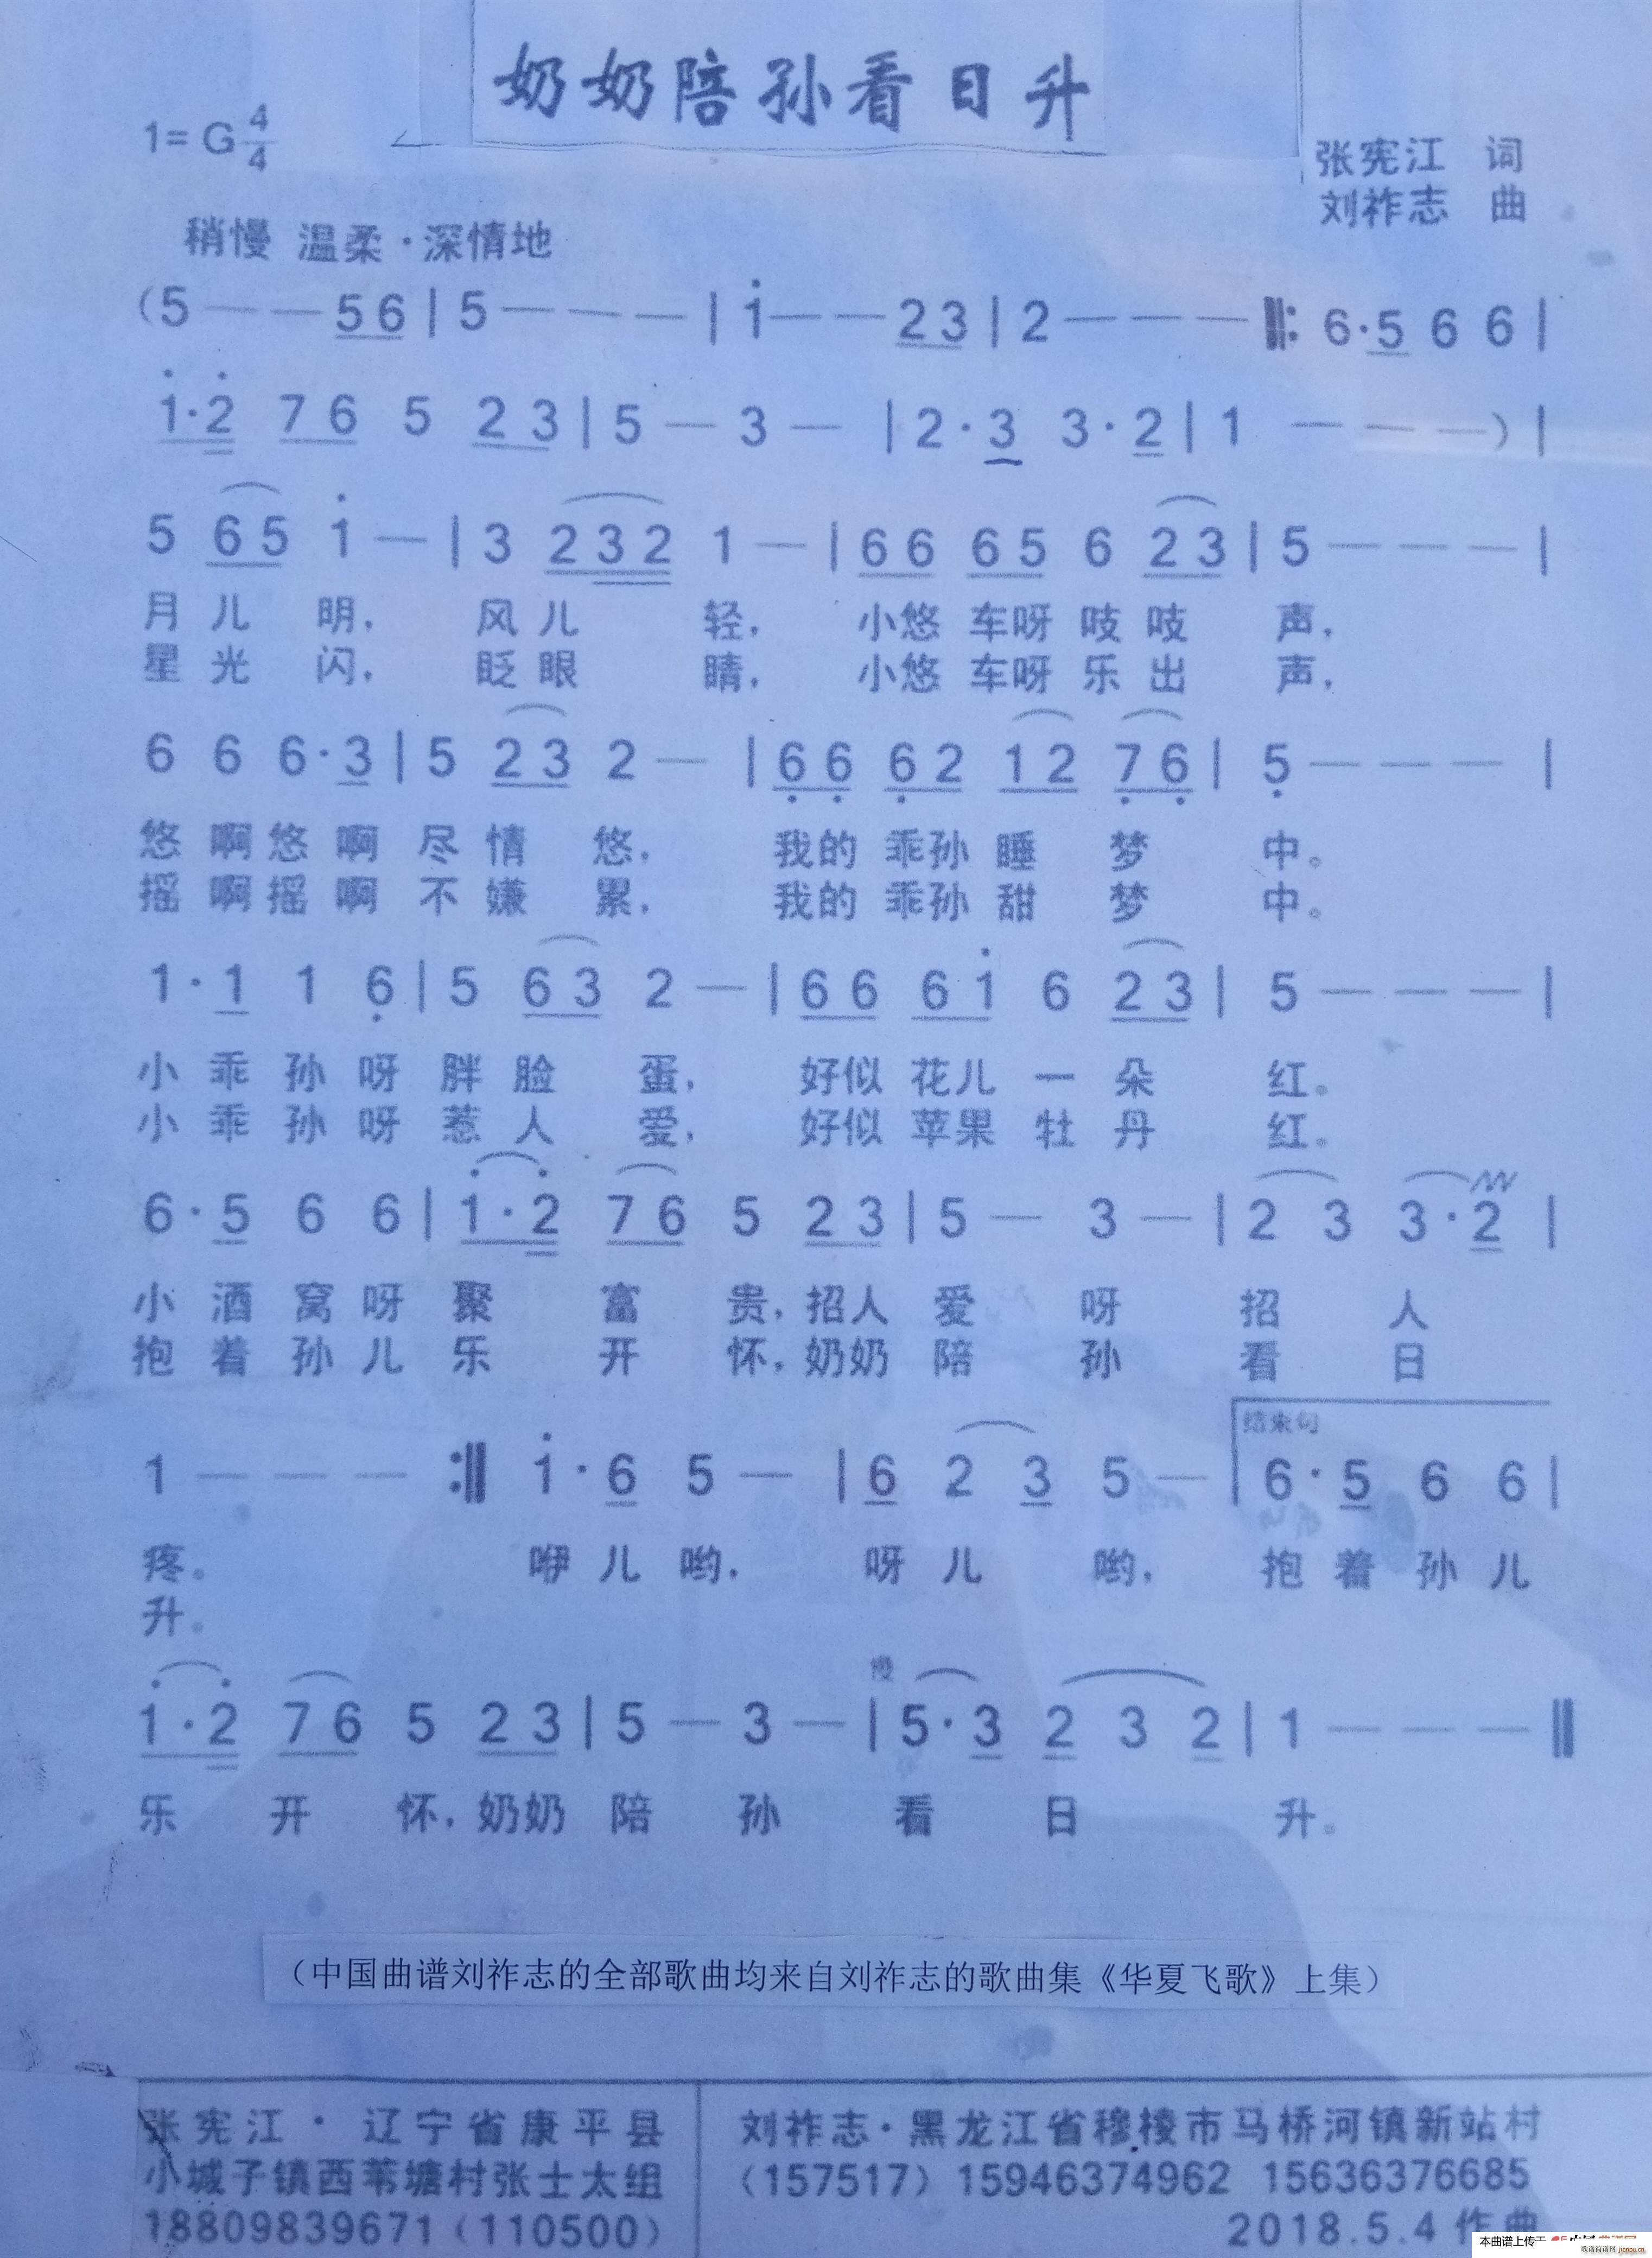 奶奶陪孙看日升
1= G 4/4
张宪江 词
刘祚志 曲
稍慢 温柔·深情地
(5 — — 5 6 | 5 — — — | 1̇ — — 2 3 | 2 — — — ‖: 6·5 6 6 |
1̇·2̇ 7 6 5 2 3 | 5 — 3 — | 2·3 3·2 | 1 — — —) |
5 6 5 1̇ — | 3 2 3 2 1 — | 6 6 6 5 6 2 3 | 5 — — — |
月 儿 明, 风 儿 轻, 小悠 车呀 吱 吱 声,
星 光 闪, 眨 眼 睛, 小悠 车呀 乐 出 声,
6 6 6·3 | 5 2 3 2 — | 6̣ 6̣ 6̣ 2 1 2 7̣ 6̣ | 5̣ — — — |
悠 啊 悠 啊 尽 情 悠, 我的 乖孙 睡 梦 中。
摇 啊 摇 啊 不 嫌 累, 我的 乖孙 甜 梦 中。
1·1 1 6̣ | 5 6 3 2 — | 6 6 6 1̇ 6 2 3 | 5 — — — |
小 乖 孙 呀 胖 脸 蛋, 好似 花儿 一 朵 红。
小 乖 孙 呀 惹 人 爱, 好似 苹果 牡 丹 红。
6·5 6 6 | 1̇·2̇ 7 6 5 2 3 | 5 — 3 — | 2 3 3·2 |
小 酒 窝 呀 聚 富 贵, 招人 爱 呀 招 人
抱 着 孙 儿 乐 开 怀, 奶奶 陪 孙 看 日
结束句
1 — — — :‖ 1̇·6 5 — | 6 2 3 5 — | 6·5 6 6 |
疼。 咿 儿 哟, 呀 儿 哟, 抱 着 孙 儿
升。
慢
1̇·2̇ 7 6 5 2 3 | 5 — 3 — | 5·3 2 3 2 | 1 — — — ‖
乐 开 怀, 奶奶 陪 孙 看 日 升。
(中国曲谱刘祚志的全部歌曲均来自刘祚志的歌曲集《华夏飞歌》上集)
张宪江·辽宁省康平县
小城子镇西苇塘村张士太组
18809839671(110500)
刘祚志·黑龙江省穆棱市马桥河镇新站村
(157517) 15946374962 15636376685
2018.5.4 作曲
本曲谱上传于
歌谱简谱网 jianpu.cn